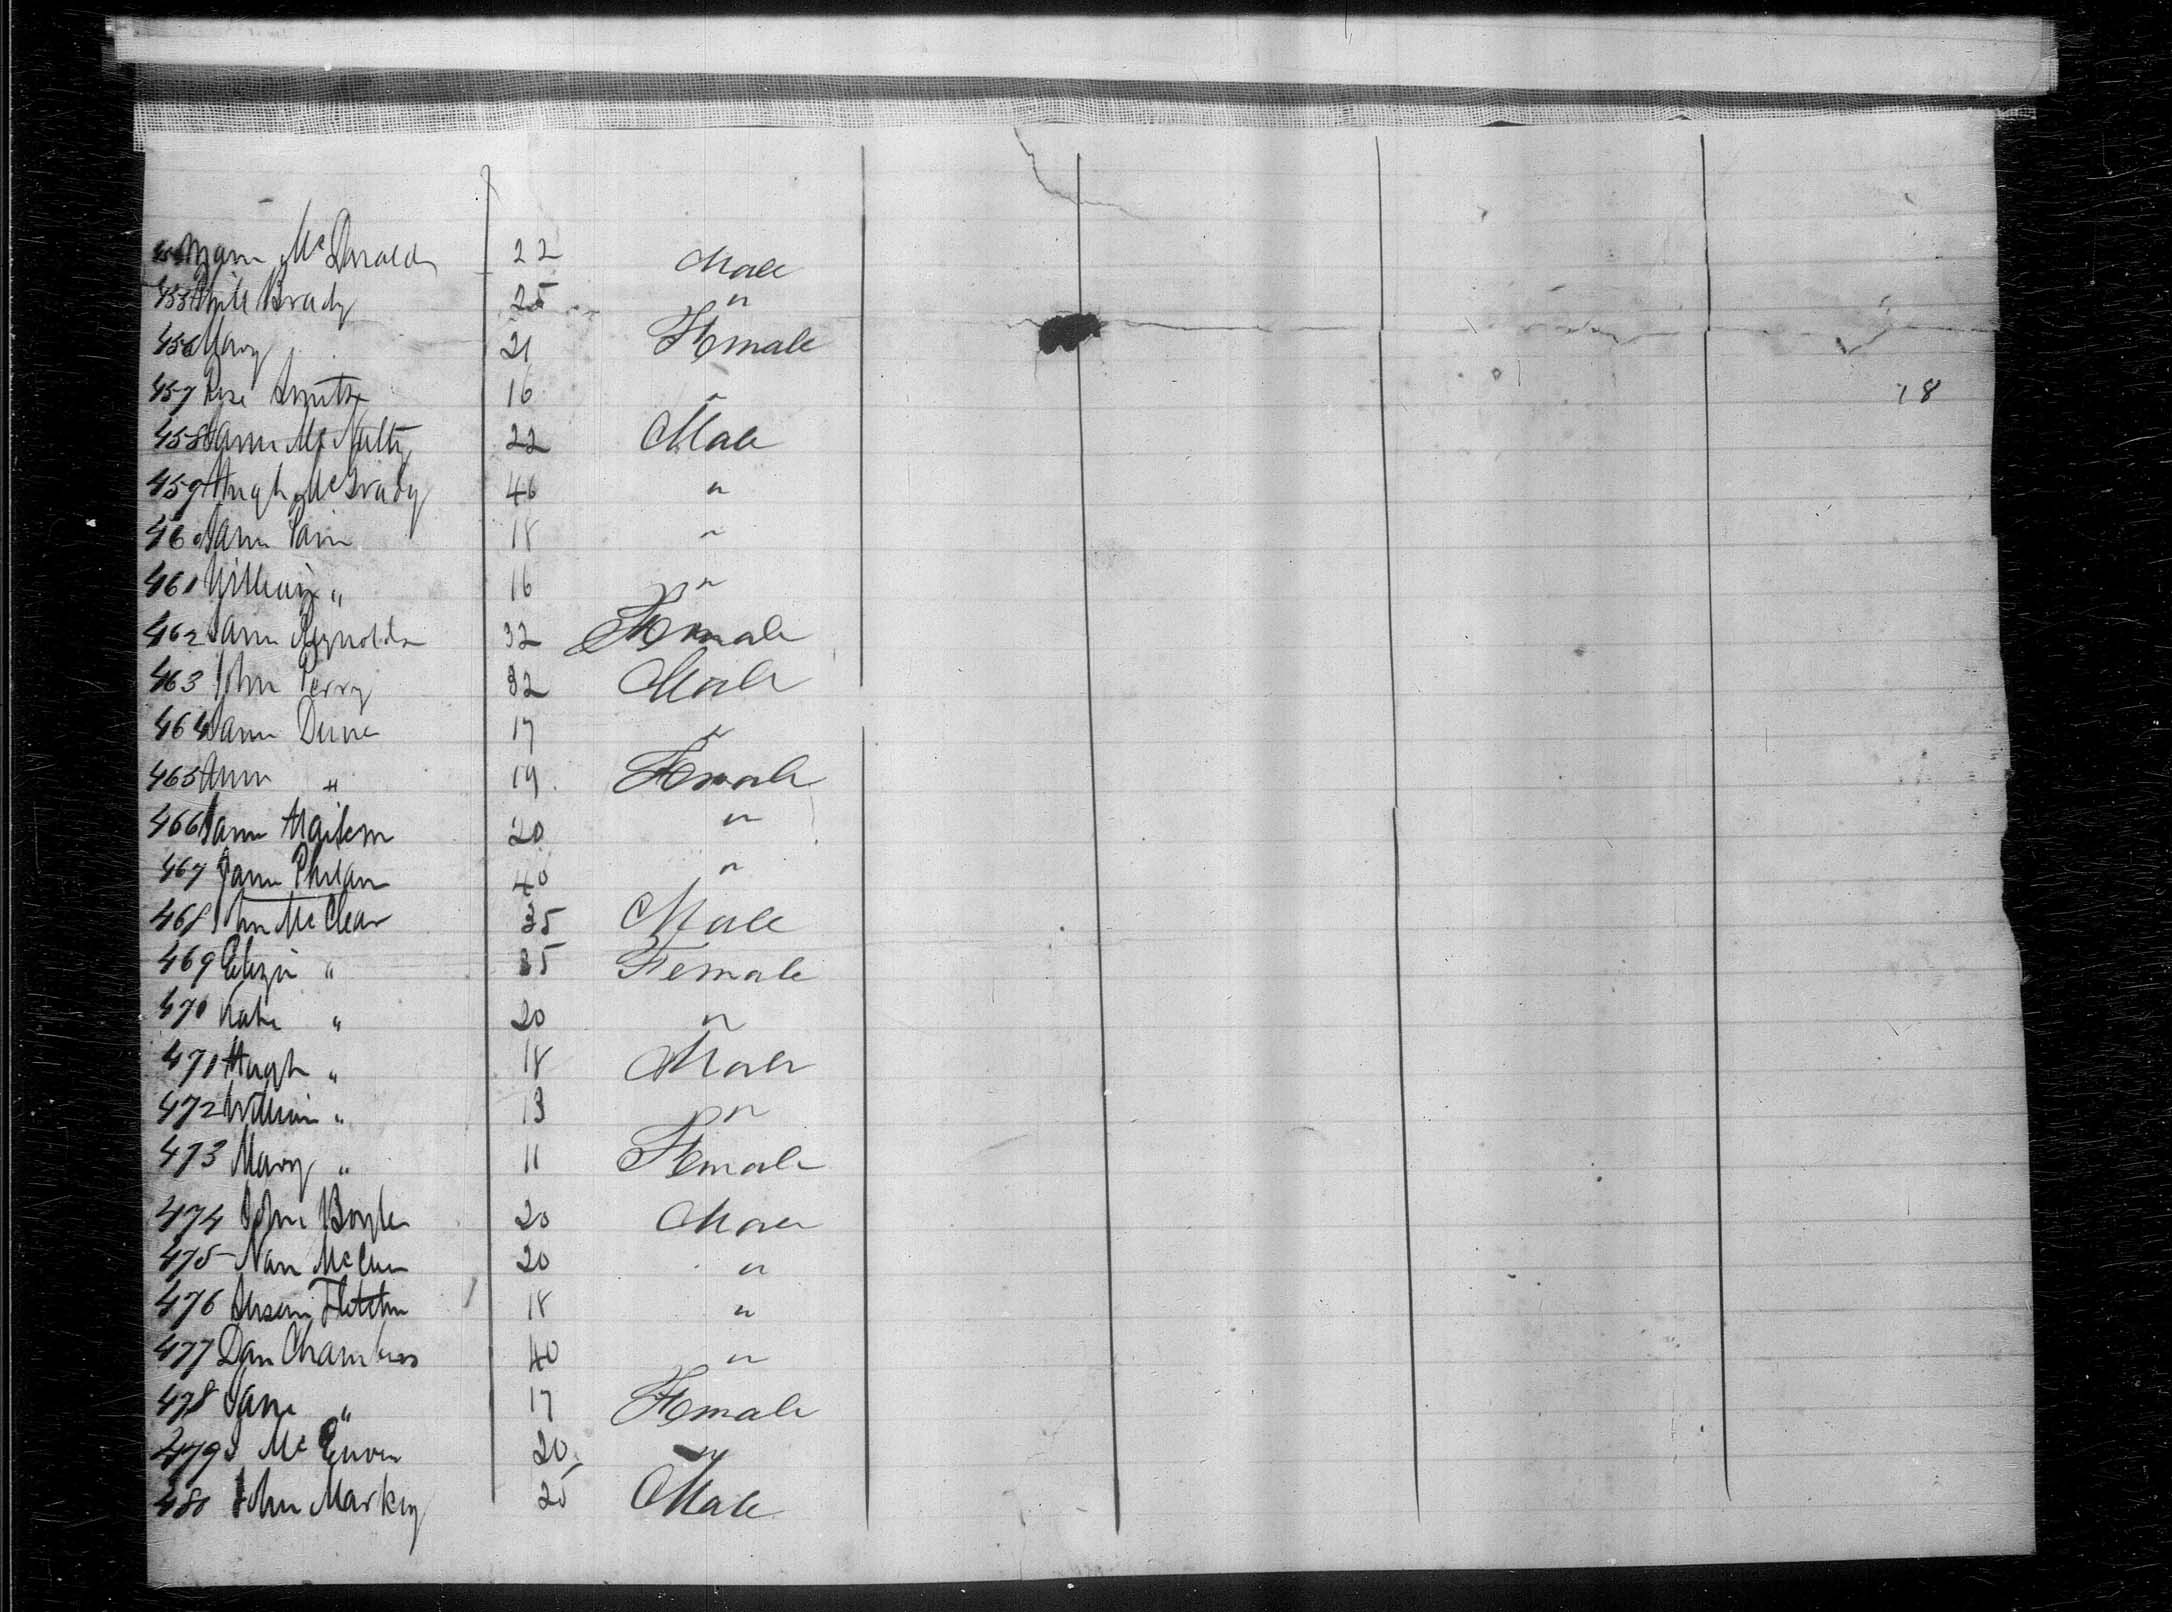 McDonald 22 Male
455 Brady 25 "
456 Mary 21 Female
457 Rose Smith 16 "
18
458 McNulty 22 Male
459 Hugh McGrady 46 "
460 18 "
461 William " 16 "
462 Reynolds 32 Female
463 John Perry 32 Male
464 Dunne 17 "
465 Ann " 19 Female
466 20 "
467 Phelan 40 "
468 John McClear 35 Male
469 Eliza " 35 Female
470 Kate " 20 "
471 Hugh " 18 Male
472 William " 13 "
473 Mary " 11 Female
474 John Boyle 20 Male
475 20 "
476 18 "
477 Dan Chambers 40 "
478 Jane " 17 Female
479 20 "
480 John Markey 25 Male